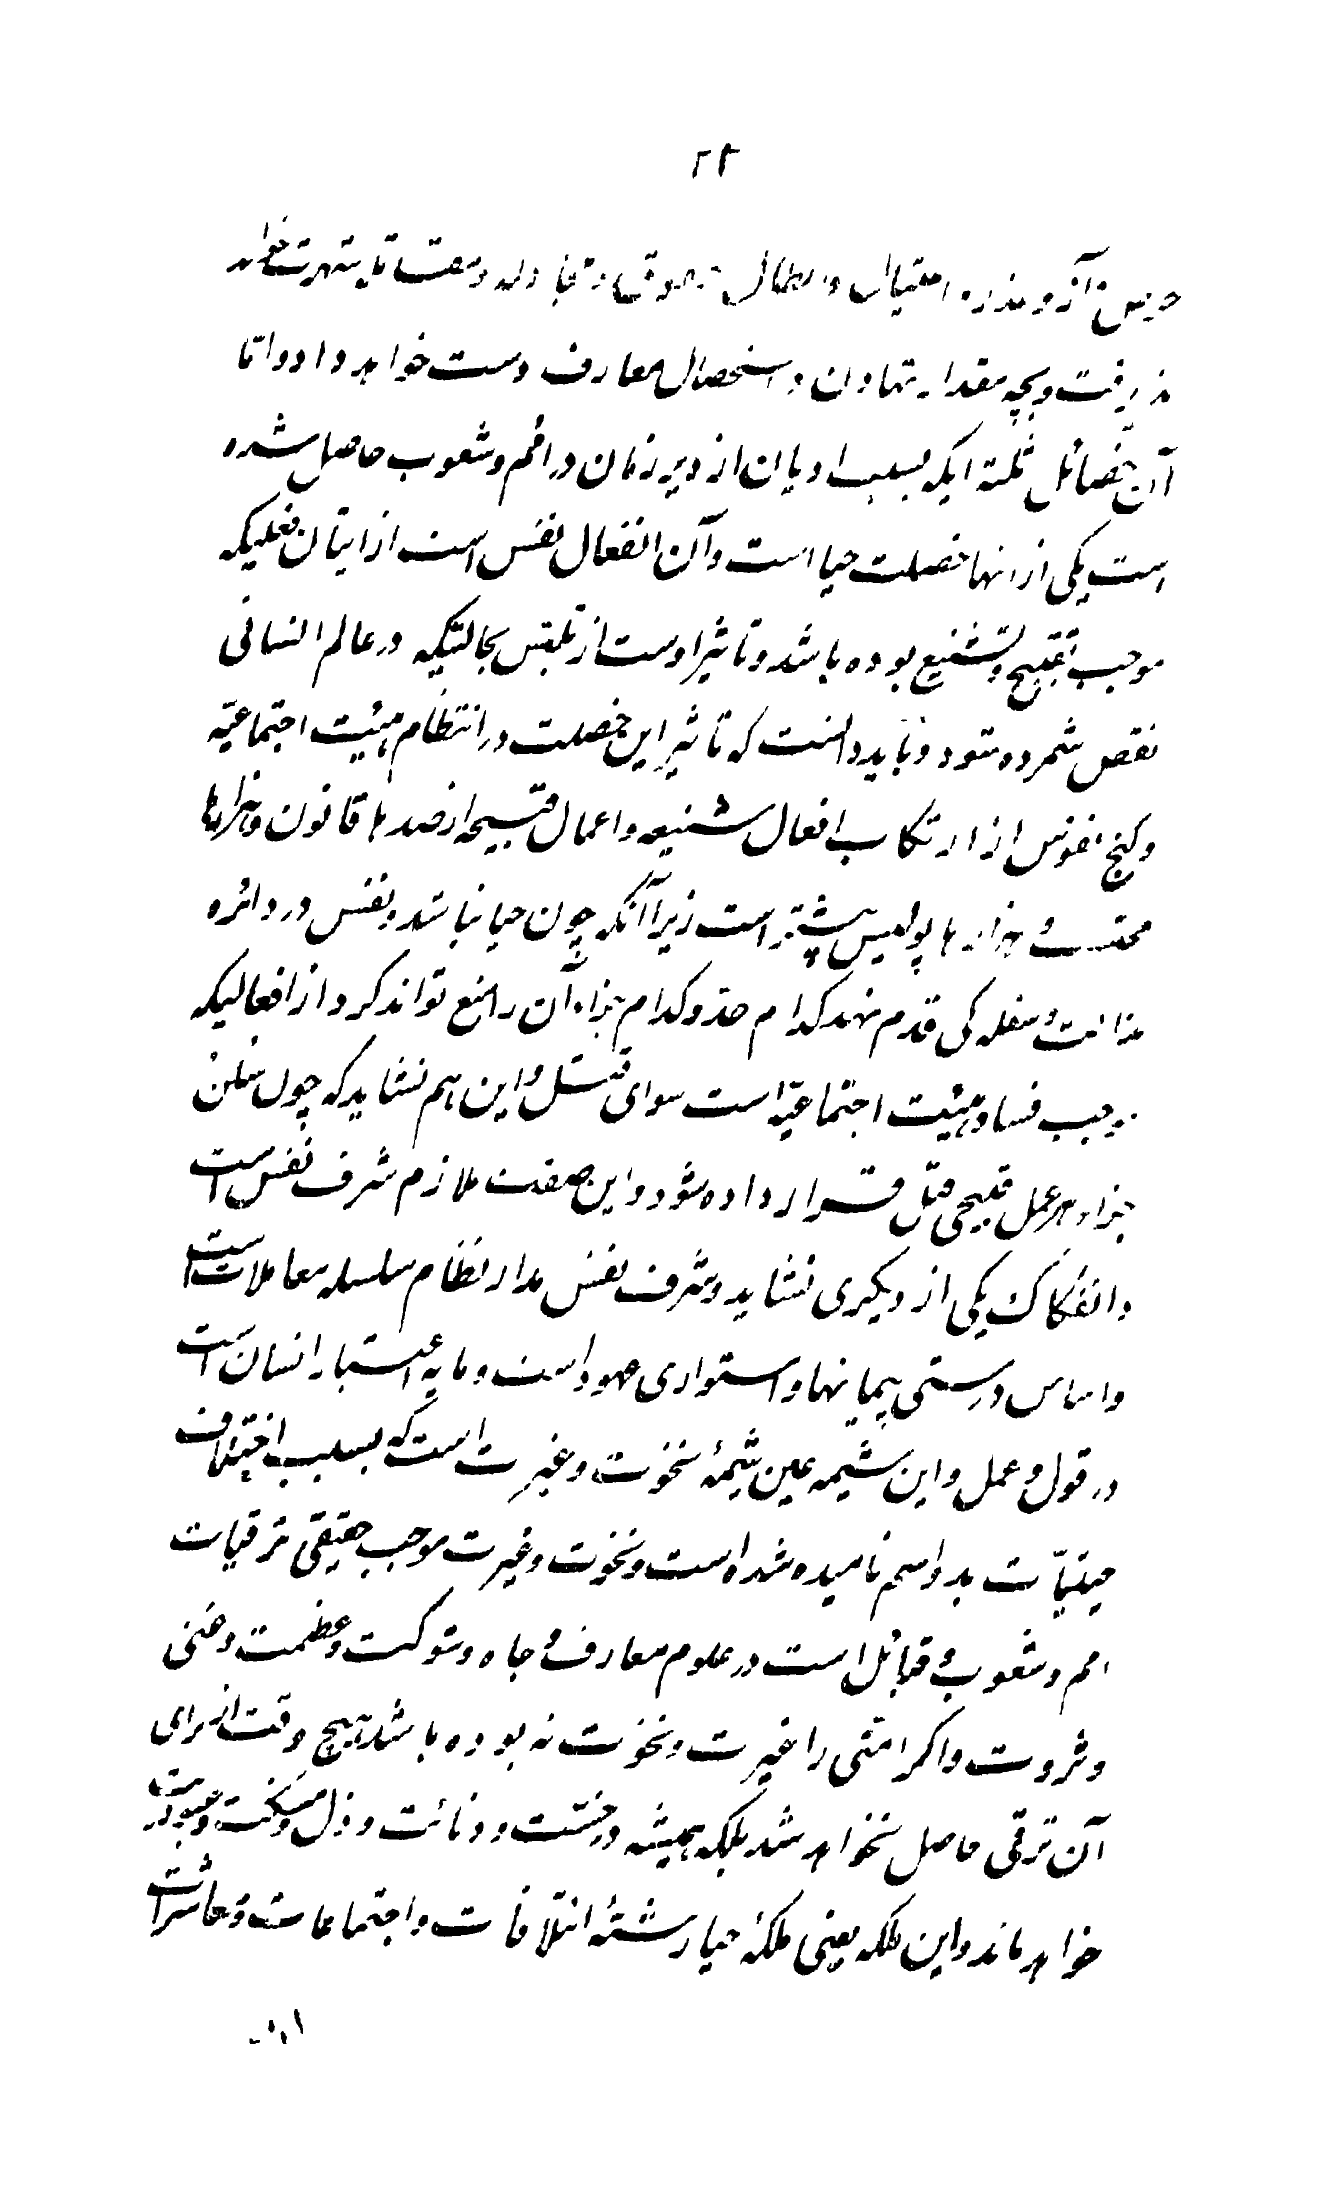 ۲۲
حرص و آز و غدر و اغتیال و ابطال حقوق و مجادله و مقاتله شهرت خواهد
پذیرفت و بچه مقدار تهاون در استحصال معارف دست خواهد داد و اما
آن خصائل ثلثة ایکه بسبب ادیان از دیر زمان در امم و شعوب حاصل شده
است یکی از انها خصلت حیا است و آن انفعال نفس است از اتیان فعلیکه
موجب تقبیح و تشنیع بوده باشد و تاثیر اوست از تلبس بحالتیکه در عالم انسانی
نقص شمرده شود و باید دانست که تاثیر این خصلت در انتظام هیئت اجتماعیّه
و کبح نفوس از ارتکاب افعال شنیعه و اعمال قبیحه از صدها قانون و هزارها
محتسب و هزارها پولیس بیشتر است زیرا آنکه چون حیا نباشد و نفس در دائره
دنائت و سفله کی قدم نهد کدام حد و کدام جزاء آن را منع تواند کرد از افعالیکه
موجب فساد هیئت اجتماعیّه است سوای قتل و این هم نشاید که چون سلن
جزاء هر عمل قبیحی قتل قرار داده شود و این صفت ملازم شرف نفس است
و انفکاک یکی از دیگری نشاید و شرف نفس مدار نظام سلسله معاملات است
و اساس درستی پیمانها و استواری عهود است و مایهٔ اعتبار انسان است
در قول و عمل و این شیمه عین شیمهٔ نخوت و غیرت است که بسبب اختلاف
حیثیّات بدو اسم نامیده شده است و نخوت و غیرت موجب حقیقی ترقیات
امم و شعوب و قبائل است در علوم معارف و جاه و شوکت و عظمت و غنی
و ثروت و اکر امتی را غیرت و نخوت نه بوده باشد هیچ وقت از برای
آن ترقی حاصل نخواهد شد بلکه همیشه در خست و دنائت و ذل و مسکنت و عبودیت
خواهد ماند و این ملکه یعنی ملکهٔ حیا رشتهٔ ائتلافات و اجتماعات و معاشرات